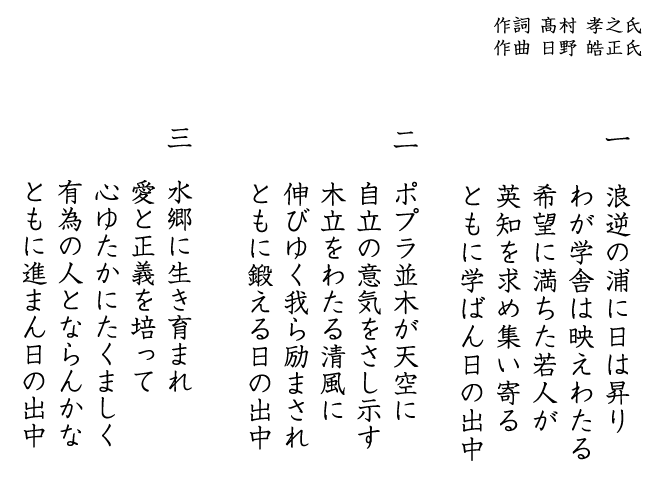 作詞 髙村 孝之氏
作曲 日野 皓正氏
一
浪逆の浦に日は昇り
わが学舎は映えわたる
希望に満ちた若人が
英知を求め集い寄る
ともに学ばん日の出中
二
ポプラ並木が天空に
自立の意気をさし示す
木立をわたる清風に
伸びゆく我ら励まされ
ともに鍛える日の出中
三
水郷に生き育まれ
愛と正義を培って
心ゆたかにたくましく
有為の人とならんかな
ともに進まん日の出中